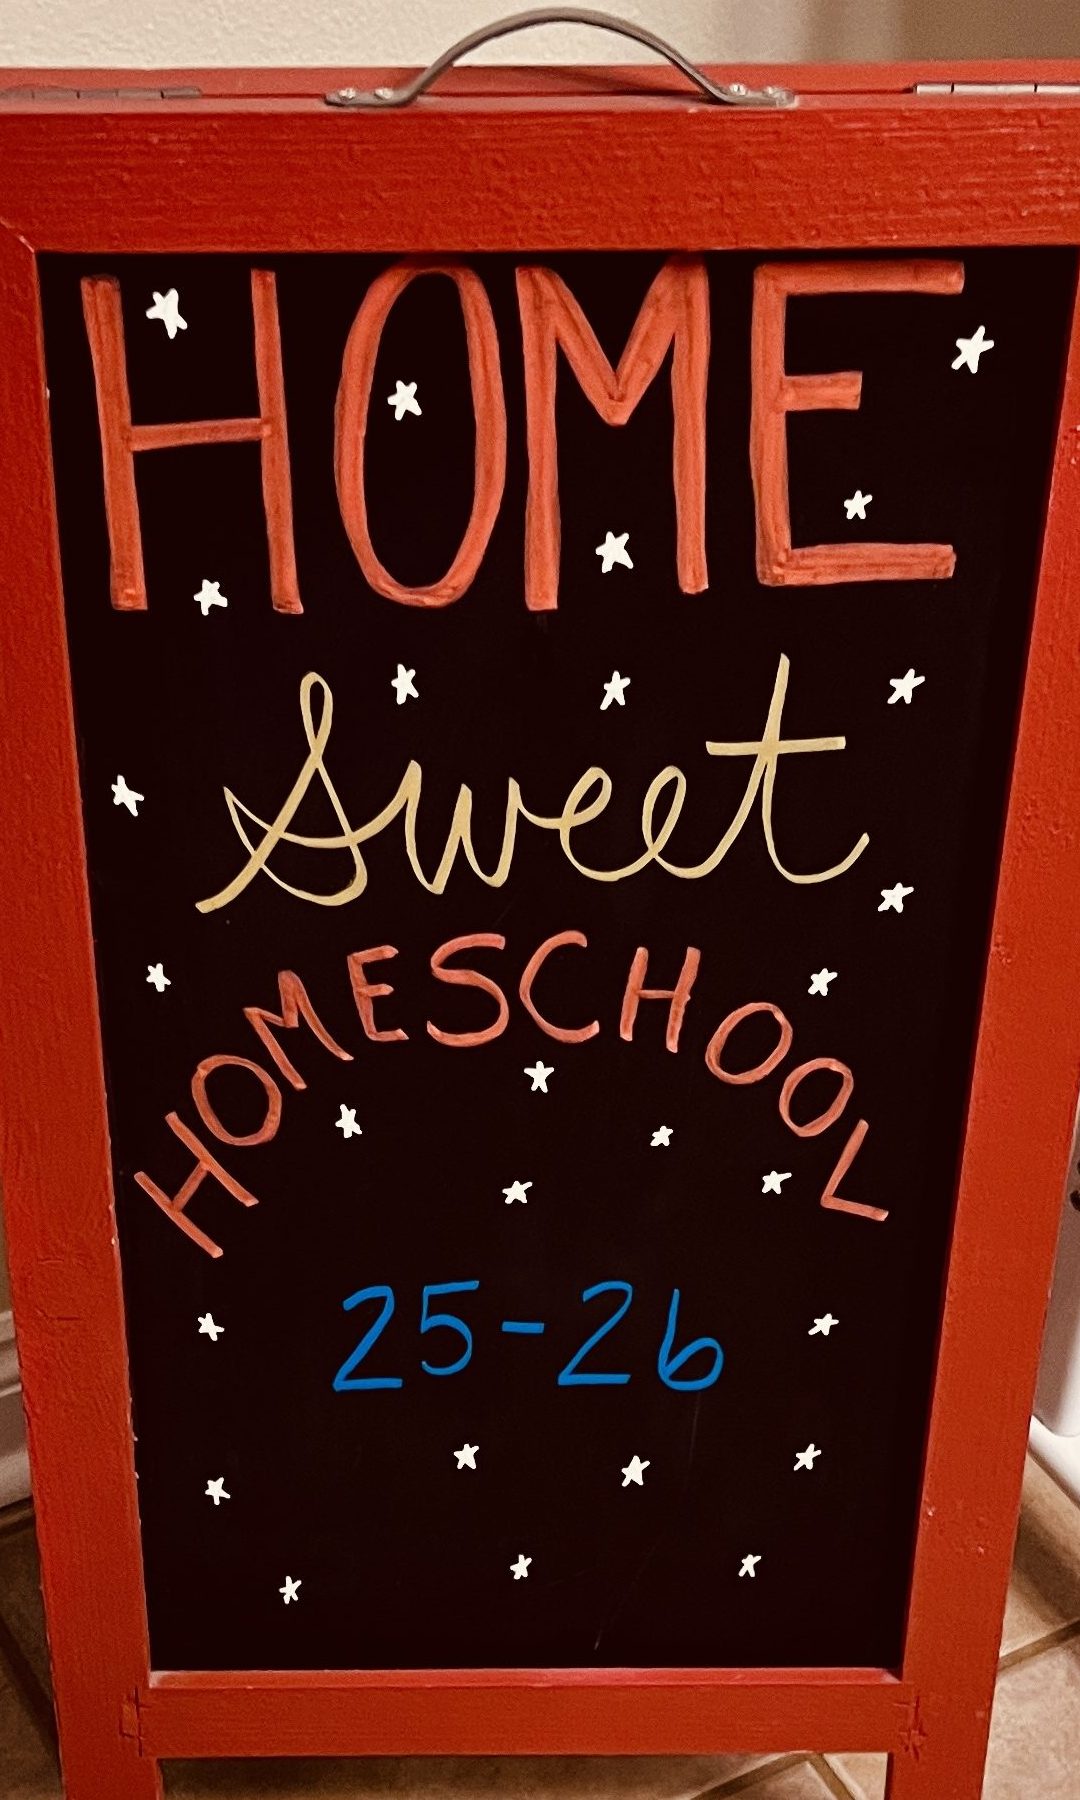 HOME
Sweet
HOMESCHOOL
25-26